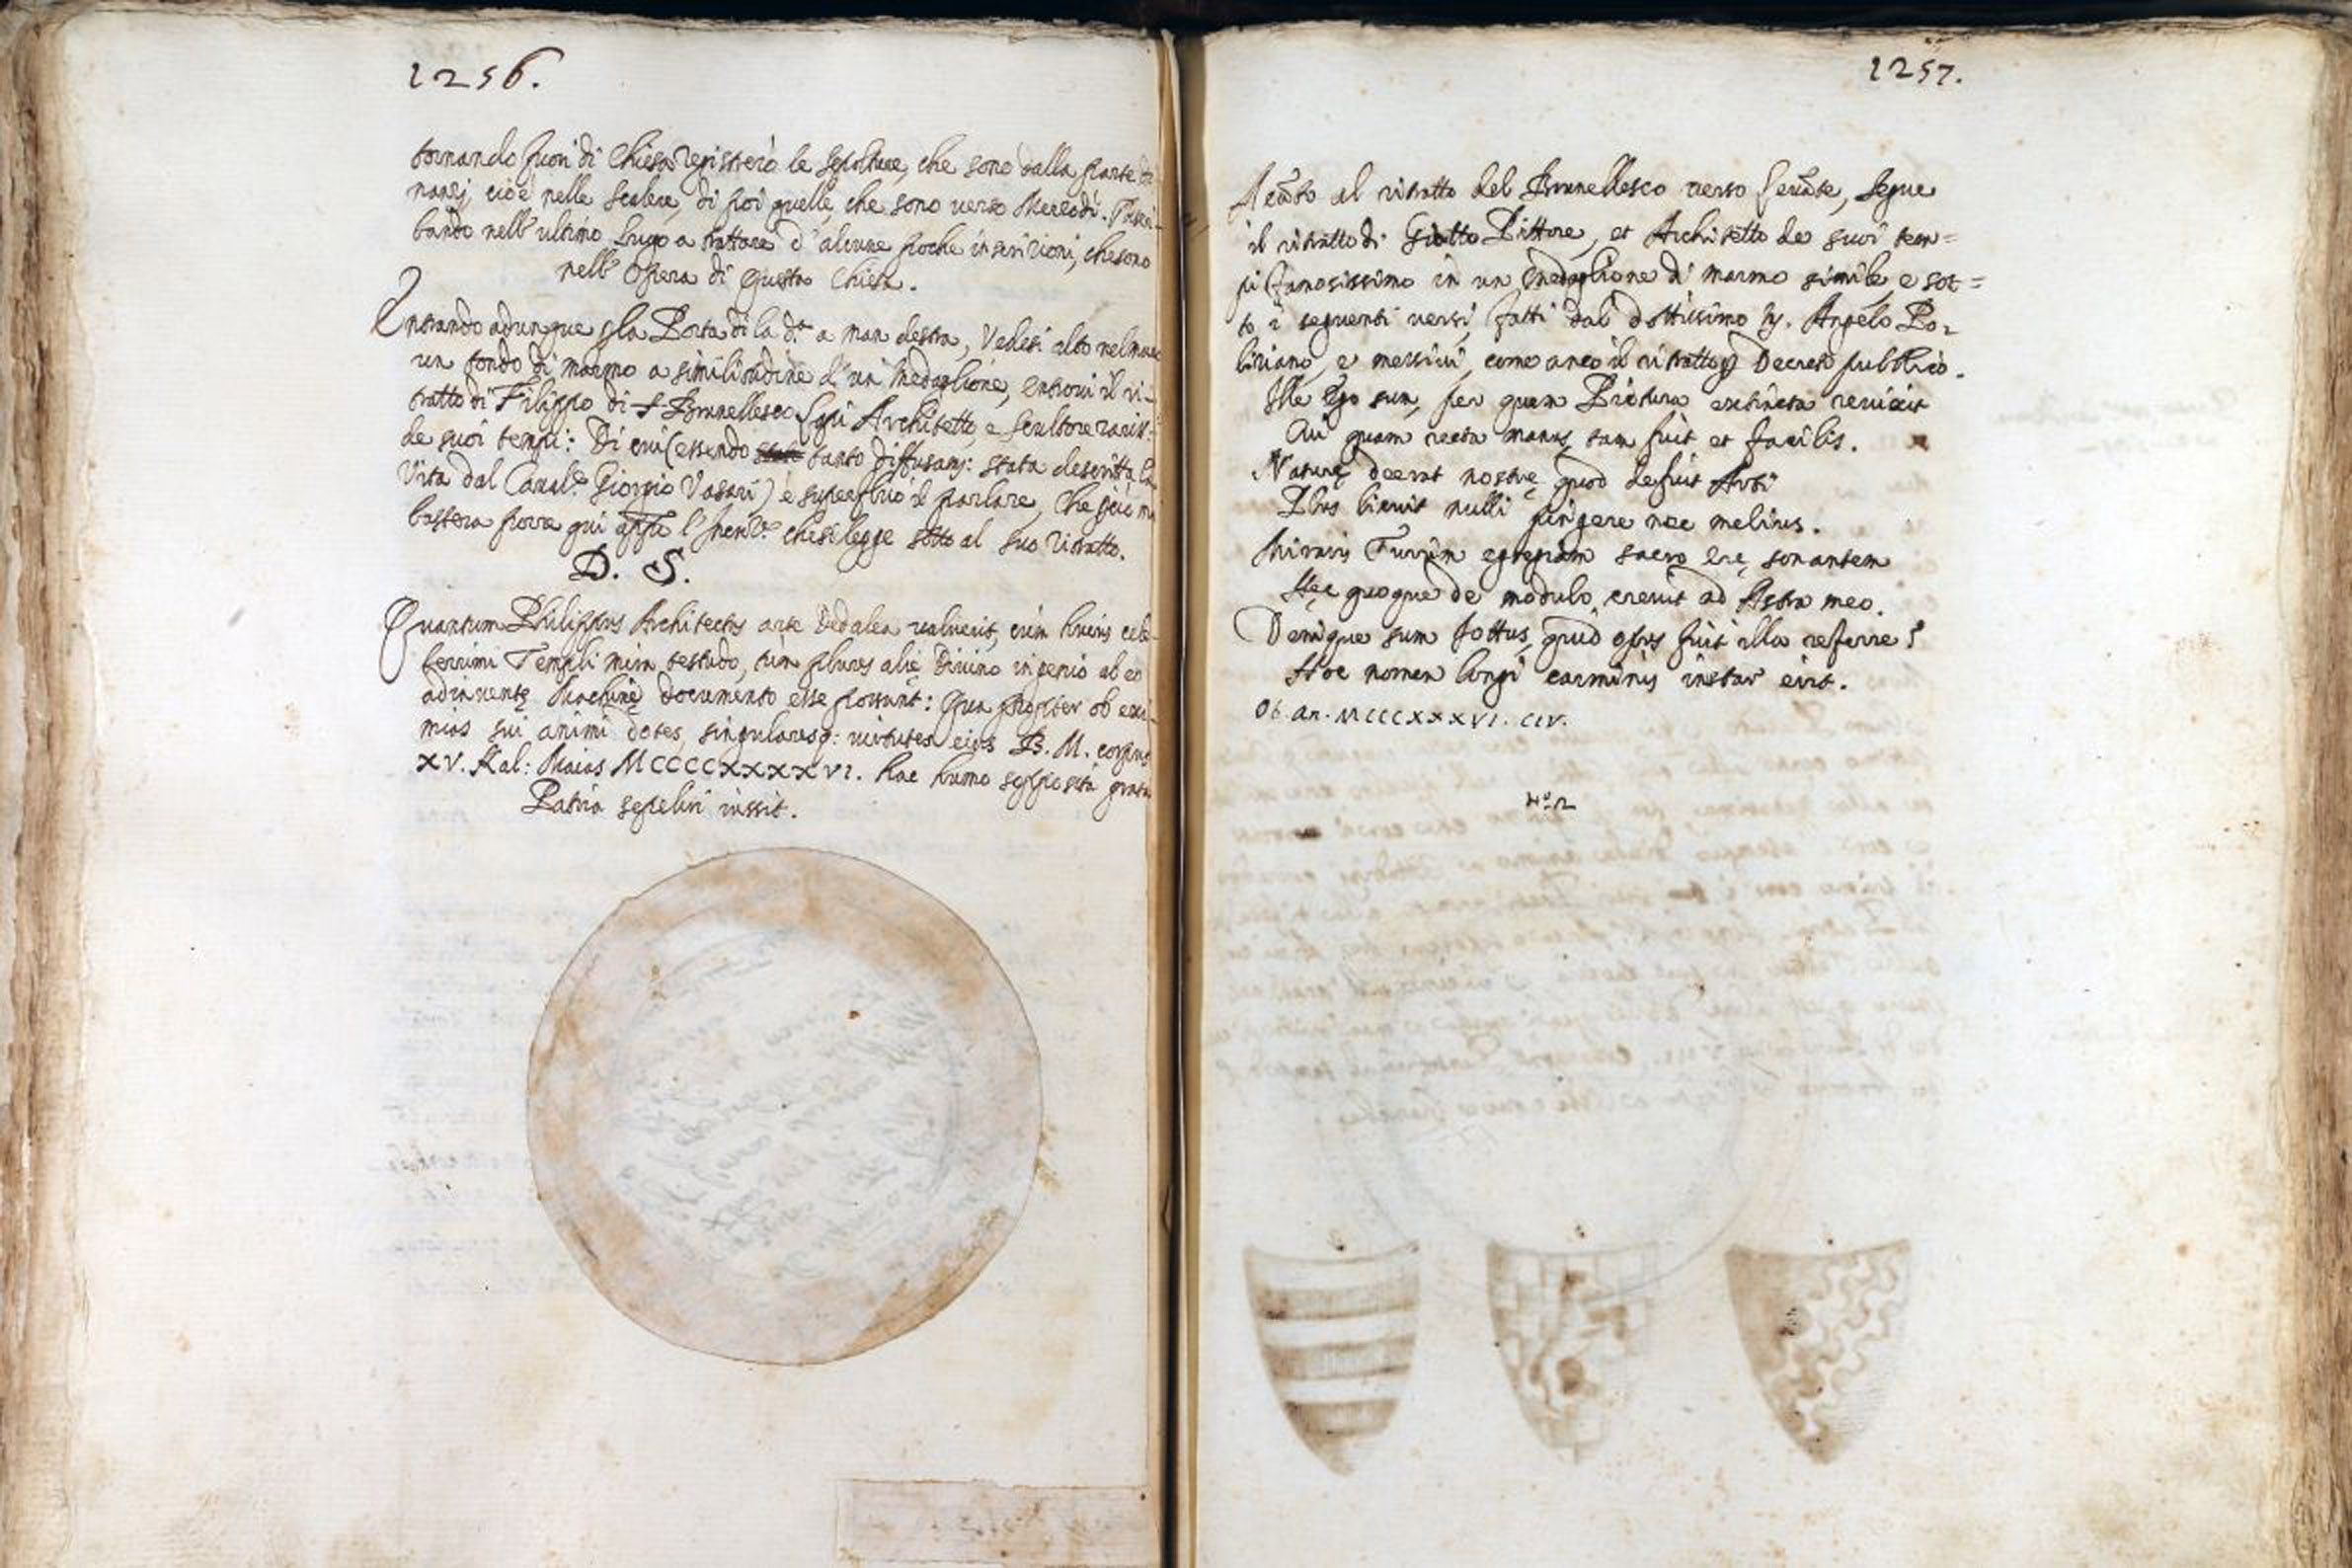 1256.
tornando fuori di Chiesa registrerò le sepolture, che sono dalla parte
nanzj, cioè nelle scalere, di poi quelle, che sono verso Mezzodì.
bando nell' ultimo luogo a trattare d'alcune poche inscrizioni, che sono
nell' Opera di questa Chiesa.
Entrando adunque p la Porta di la dᵃ a man destra, Vedesi alto nel
un tondo di marmo a similitudine d'un Medaglione, entrovi il ri-
tratto di Filippo di S. Brunellesco Lapi Architetto, e scultore
de suoi tempi: Di cui (essendo tanto diffusamᵉ: stata descritta la
Vita dal Caval.ᵉ Giorgio Vasari) è superfluo il parlare, che
basterà porre qui appᵒ l' che si legge sotto al suo ritratto.
D. S.
Quantum Philippus Architectus arte Dedalea valuerit, cùm huius cele-
berrimi Templi mira testudo, tùm plures alię Divino ingenio ab eo
adinventę Machinę documento esse possunt: Qua propter ob exi-
mias sui animi dotes, singularesq: virtutes eius B. M. corpus
XV. Kal: Maias MCCCCXXXXVI. hac humo supposita grata
Patria sepeliri iussit.
1257.
Acãto al ritratto del Brunellesco verso Levãte, segue
il ritratto di Giotto Pittore, et Architetto de suoi tem=
pi famosissimo in un Medaglione di marmo simile, e sot=
to i seguenti versi, fatti dal dottissimo Angelo Po-
liziano, e messivi, come anco il ritratto p Decreto pubblico.
Ille Ego sum, per quem Pictura extincta revixit
Cui quam recta manus, tam fuit et facilis.
Naturę deerat nostrę, quod defuit Arti
Plus licuit nulli pingere nec melius.
Miraris Turrim egregiam sacro ęre, sonantem
Hęc quoque de modulo, crevit ad Astra meo.
Denique sum Jottus, quid opus fuit illa referre?
Hoc nomen longi carminis instar erit.
Ob. an. MCCCXXXVI. CIV.